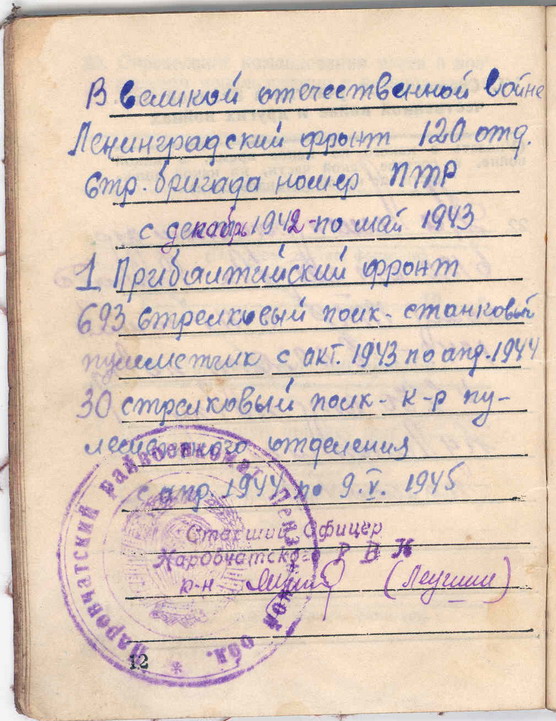 В великой отечественной войне
Ленинградский фронт 120 отд.
стр. бригада номер ПТР
с декабрь 1942 - по май 1943
1 Прибалтийский фронт
693 стрелковый полк - станковый
пулиметчик с акт. 1943 по апр. 1944
30 стрелковый полк - к-р пу-
леметного отделения
с апр. 1944 по 9.V. 1945
Старший Офицер
Наровчатского Р В К
р-н
Наровчатский райвоенкомат Пензенской обл. *
12